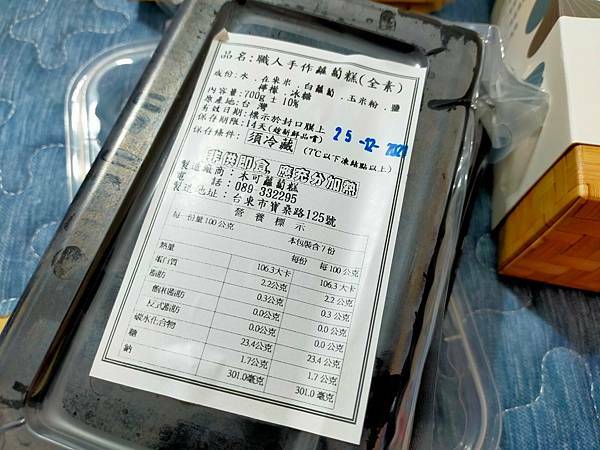 品名:職人手作蘿蔔糕(全素)
成份:水．在來米．白蘿蔔．玉米粉．鹽
檸檬．冰糖
內容量:700g±10%
原產地:台灣
有效日期:標示於封口膜上
保存期限:14天(趁新鮮品嚐) 25-12-2021
保存條件:須冷藏(7℃以下凍結點以上)
非供即食,應充分加熱
製造廠商:木可蘿蔔糕
電話:089 332295
製造地址:台東市寶桑路125號
營養標示
每一份量100公克 本包裝含7份
每份 每100公克
熱量 106.3大卡 106.3大卡
蛋白質 2.2公克 2.2公克
脂肪 0.3公克 0.3公克
飽和脂肪 0.0公克 0.0公克
反式脂肪 0.0公克 0.0公克
碳水化合物 23.4公克 23.4公克
糖 1.7公克 1.7公克
鈉 301.0毫克 301.0毫克